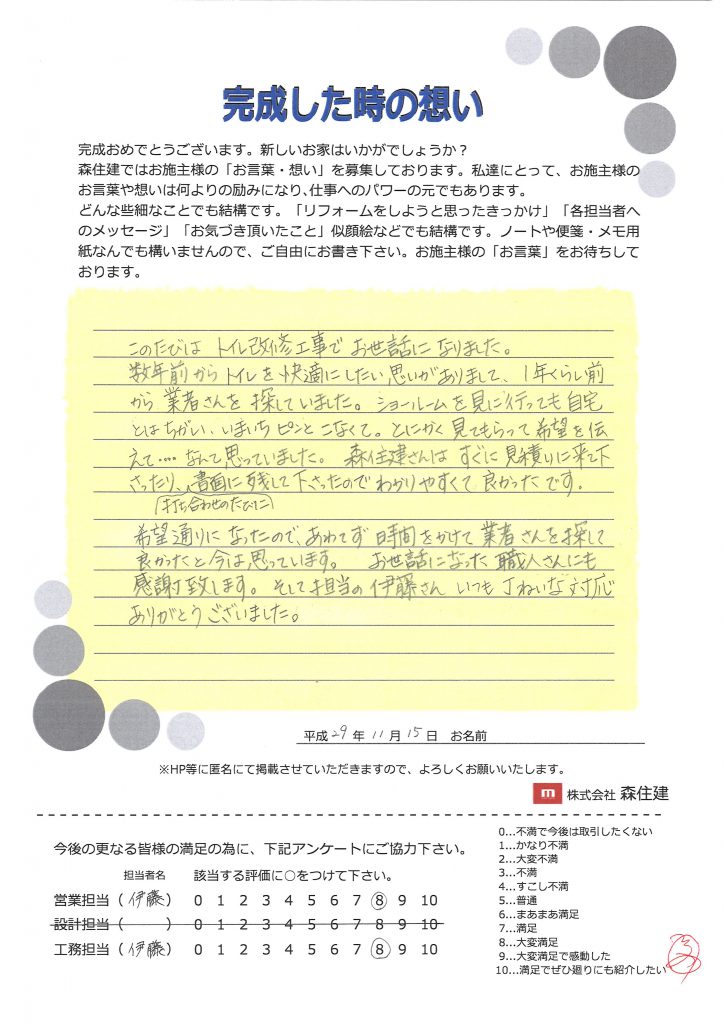 完成した時の想い
完成おめでとうございます。新しいお家はいかがでしょうか？
森住建ではお施主様の「お言葉・想い」を募集しております。私達にとって、お施主様の
お言葉や想いは何よりの励みになり、仕事へのパワーの元でもあります。
どんな些細なことでも結構です。「リフォームをしようと思ったきっかけ」「各担当者へ
のメッセージ」「お気づき頂いたこと」似顔絵などでも結構です。ノートや便箋・メモ用
紙なんでも構いませんので、ご自由にお書き下さい。お施主様の「お言葉」をお待ちして
おります。
このたびは トイレ改修工事で お世話に なりました。
数年前から トイレを 快適にしたい 思いがありまして、1年くらい前
から 業者さんを 探していました。ショールームを 見に行っても 自宅
とは ちがい、いまいち ピンと こなくて。とにかく 見てもらって 希望を 伝
えて‥‥なんて 思っていました。 森住建さんは すぐに 見積りに 来て下
さったり、書面に 残して 下さったので わかりやすくて 良かったです。
(打ち合わせのたびに)
希望通りに なったので、あわてず 時間をかけて 業者さんを 探して
良かったと 今は 思っています。 お世話になった 職人さんにも
感謝致します。そして 担当の 伊藤さん いつも 丁ねいな 対応
ありがとう ございました。
平成 29 年 11 月 15 日 お名前
※HP等に匿名にて掲載させていただきますので、よろしくお願いいたします。
m 株式会社 森住建
今後の更なる皆様の満足の為に、下記アンケートにご協力下さい。
担当者名 該当する評価に○をつけて下さい。
営業担当（ 伊藤 ） 0 1 2 3 4 5 6 7 8 9 10
設計担当（ ） 0 1 2 3 4 5 6 7 8 9 10
工務担当（ 伊藤 ） 0 1 2 3 4 5 6 7 8 9 10
0…不満で今後は取引したくない
1…かなり不満
2…大変不満
3…不満
4…すこし不満
5…普通
6…まあまあ満足
7…満足
8…大変満足
9…大変満足で感動した
10…満足でぜひ廻りにも紹介したい